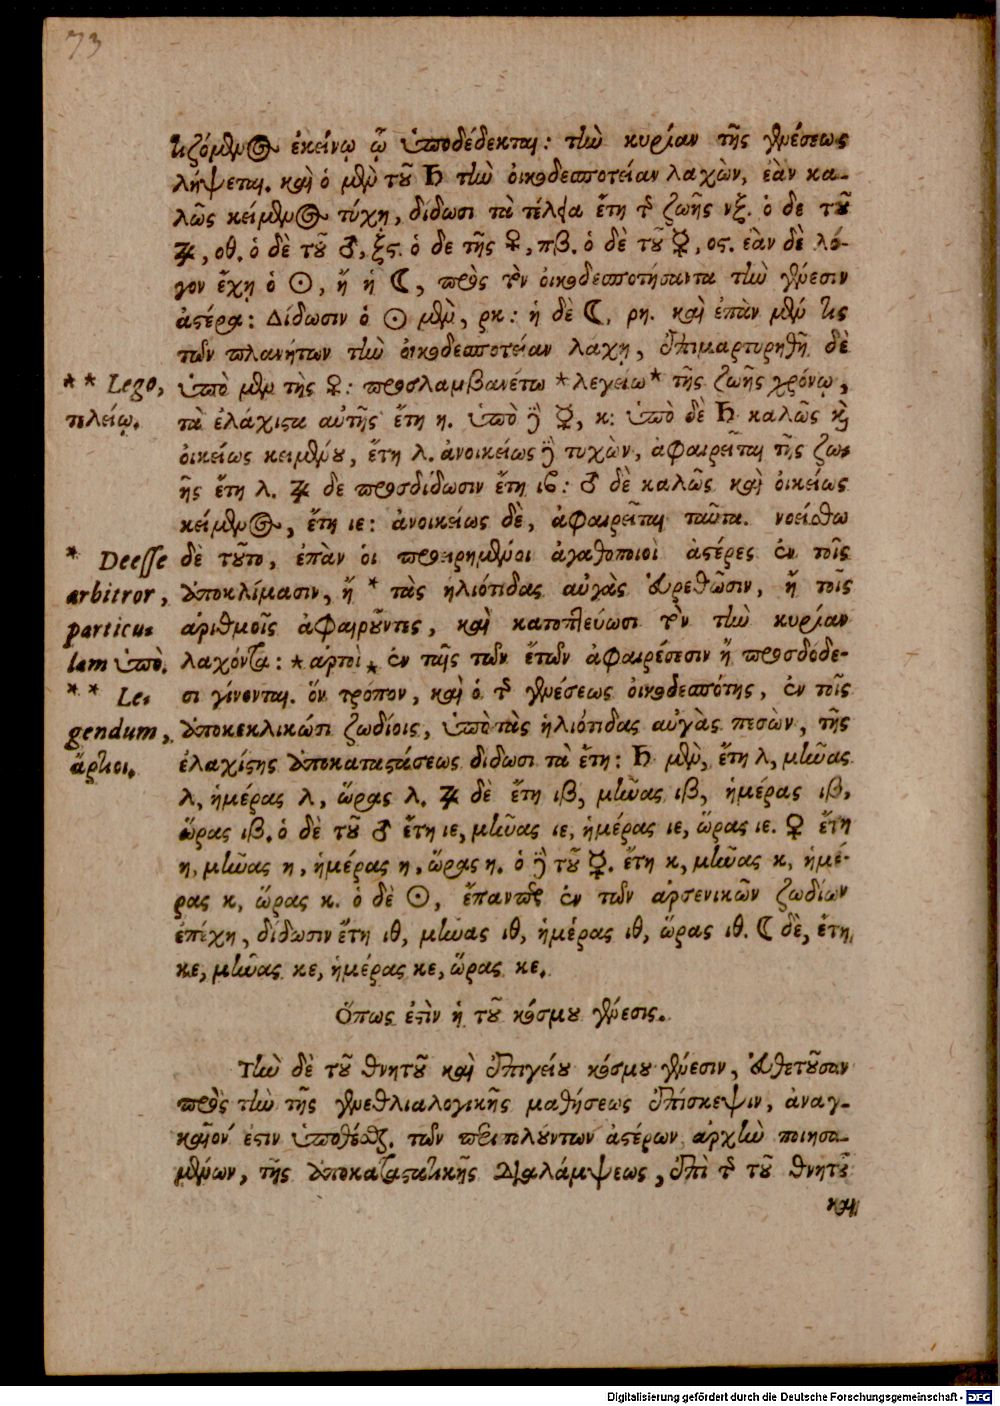 73
τιζόμενος ἐκείνῳ ᾧ ὑποδέδεκται: τὴν κυρίαν τῆς γενέσεως
λήψεται. καὶ ὁ μὲν τοῦ ♄ τὴν οἰκοδεσποτείαν λαχὼν, ἐὰν κα-
λῶς κείμενος τύχῃ, δίδωσι τὰ τέλεια ἔτη τῆς ζωῆς νξ. ὁ δε τοῦ
♃, οθ. ὁ δὲ τοῦ ♂, ξϛ. ὁ δε τῆς ♀, πβ. ὁ δὲ τοῦ ☿, οϛ. ἐὰν δὲ λό-
γον ἔχῃ ὁ ☉, ἤ ἡ ☾, πρὸς τὸν οἰκοδεσποτήσαντα τὴν γένεσιν
ἀστέρα: Δίδωσιν ὁ ☉ μὲν, ρκ: ἡ δὲ ☾, ρη. καὶ ἐπὰν μέν τις
τῶν πλανήτων τὴν οἰκοδεσποτείαν λάχῃ, ἐπιμαρτυρηθῇ δὲ
** Lego, ὑπὸ μεν τῆς ♀: προσλαμβανέτω *λεγείω* τῆς ζωῆς χρόνῳ,
πλείῳ. τὰ ἐλάχιστα αὐτῆς ἔτη η. ὑπὸ δὲ ☿, κ: ὑπὸ δὲ ♄ καλῶς καὶ
οἰκείως κειμένου, ἔτη λ. ἀνοικείως δὲ τυχὼν, ἀφαιρεῖται τῆς ζω-
ῆς ἔτη λ. ♃ δε προσδίδωσιν ἔτη ιβ: ♂ δὲ καλῶς καὶ οἰκείως
κείμενος, ἔτη ιε: ἀνοικείως δὲ, ἀφαιρεῖται ταῦτα. νοείσθω
* Deesse δὲ τοῦτο, ἐπὰν ὁι προειρημένοι ἀγαθοποιοὶ ἀστέρες ἐν τοῖς
arbitror, ἀποκλίμασιν, ἤ * τὰς ἡλιότιδας αὐγὰς εὑρεθῶσιν, ἤ τοῖς
particu- ἀριθμοῖς ἀφαιροῦντες, καὶ κατοπτεύωσι τὸν τὴν κυρίαν
lam ὑπὸ. λαχόντα: *ἀρτοὶ* ἐν ταῖς τῶν ἔτῶν ἀφαιρέσεσιν ἤ προσδόσε-
** Le- σι γίνονται. ὅν τρόπον, καὶ ὁ τῆς γενέσεως οἰκοδεσπότης, ἐν τοῖς
gendum, ἀποκεκλικόσι ζωδίοις, ὑπὸ τὰς ἡλιότιδας αὐγὰς πεσὼν, τῆς
ἄρτιοι. ἐλαχίστης ἀποκαταστάσεως δίδωσι τὰ ἔτη: ♄ μὲν, ἔτη λ, μῆνας
λ, ἡμέρας λ, ὥρας λ. ♃ δὲ ἔτη ιβ, μῆνας ιβ, ἡμέρας ιβ,
ὥρας ιβ. ὁ δὲ τοῦ ♂ ἔτη ιε, μῆνας ιε, ἡμέρας ιε, ὥρας ιε. ♀ ἔτη
η, μῆνας η, ἡμέρας η, ὥρας η. ὁ δὲ τοῦ ☿. ἔτη κ, μῆνας κ, ἡμέ-
ρας κ, ὥρας κ. ὁ δὲ ☉, ἐν τῶν ἀρσενικῶν ζωδίων
ἐπέχῃ, δίδωσιν ἔτη ιθ, μῆνας ιθ, ἡμέρας ιθ, ὥρας ιθ. ☾ δὲ, ἔτη
κε, μῆνας κε, ἡμέρας κε, ὥρας κε.
Ὅπως ἐστὶν ἡ τοῦ κόσμου γένεσις.
Τὴν δὲ τοῦ θνητοῦ καὶ ἐπιγείου κόσμου γένεσιν, εὐθετοῦσαν
πρὸς τὴν τῆς γενεθλιαλογικῆς μαθήσεως ἐπίσκεψιν, ἀναγ-
καῖον ἐστιν ὑποθέσθαι. τῶν περιπολούντων ἀστέρων ἀρχὴν ποιησα-
μένων, τῆς ἀποκαταστατικῆς διαλάμψεως, ἐπὶ τῆς τοῦ θνητοῦ
και
Digitalisierung gefördert durch die Deutsche Forschungsgemeinschaft - DFG